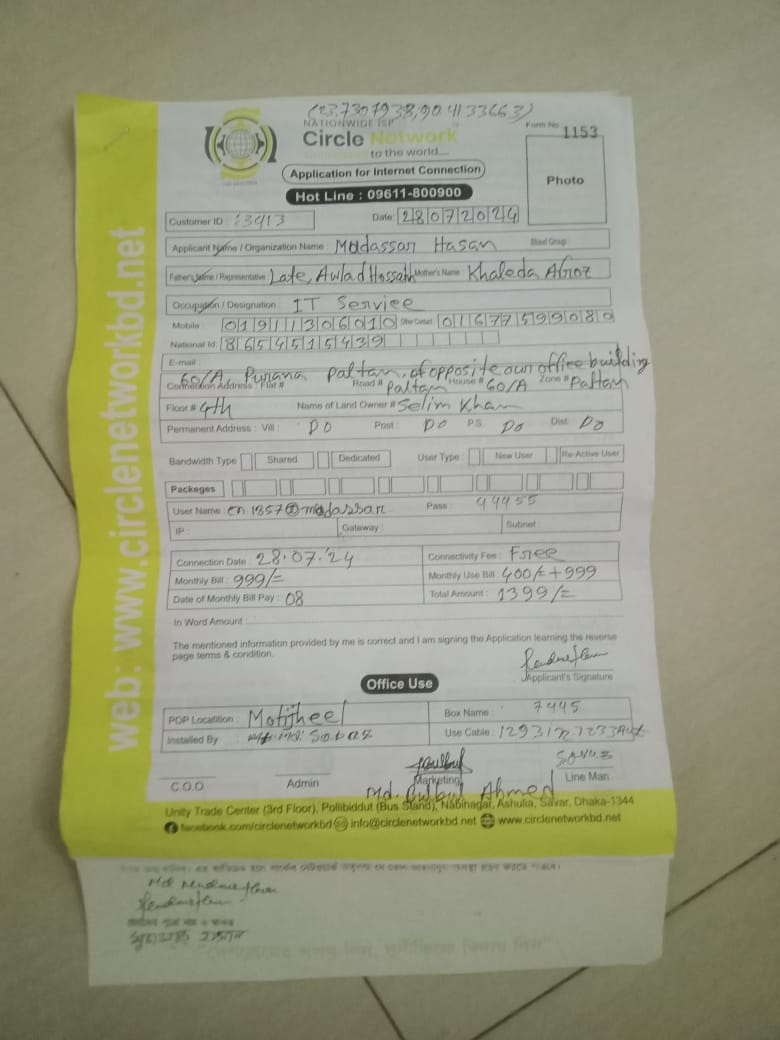 (23.7307938,90.4133663)
NATIONWIDE ISP
Circle Network
to the world....
Form No 1153
Application for Internet Connection
Photo
Hot Line : 09611-800900
Customer ID : 3913 Date: 28072024
Applicant Name / Organization Name : Madassar Hasan Blood Group
Father's Name / Representative Late, Awlad Hossain Mother's Name Khaleda Afroz
Occupation / Designation : IT Service
Mobile : 01911306010 Other Contact 01677599089
National Id : 8654515439
E-mail
60/A, Purana Paltan, of opposite own office building
Connection Address : Flat # Road # Paltan House # 60/A Zone # Paltan
Floor # 4th Name of Land Owner # Selim Khan
Permanent Address : Vill : DO Post : DO P.S. DO Dist. DO
Bandwidth Type Shared Dedicated User Type : New User Re-Active User
Packeges
User Name : cn1857@madassar Pass : 44455
IP : Gateway : Subnet
Connection Date : 28.07.'24 Connectivity Fee : Free
Monthly Bill : 999/= Monthly Use Bill : 400/= + 999
Date of Monthly Bill Pay : 08 Total Amount : 1399/=
In Word Amount :
The mentioned information provided by me is correct and I am signing the Application learning the reverse
page terms & condition.
Applicant's Signature
Office Use
POP Locatition : Motijheel Box Name : 7445
Installed By Md: Use Cable :
C.O.O Admin Marketing Line Man
Md. Bulbul Ahmed
Unity Trade Center (3rd Floor), Pollibiddut (Bus Stand), Nabinagar, Ashulia, Savar, Dhaka-1344
facebook.com/circlenetworkbd info@circlenetworkbd.net www.circlenetworkbd.net
web: www.circlenetworkbd.net